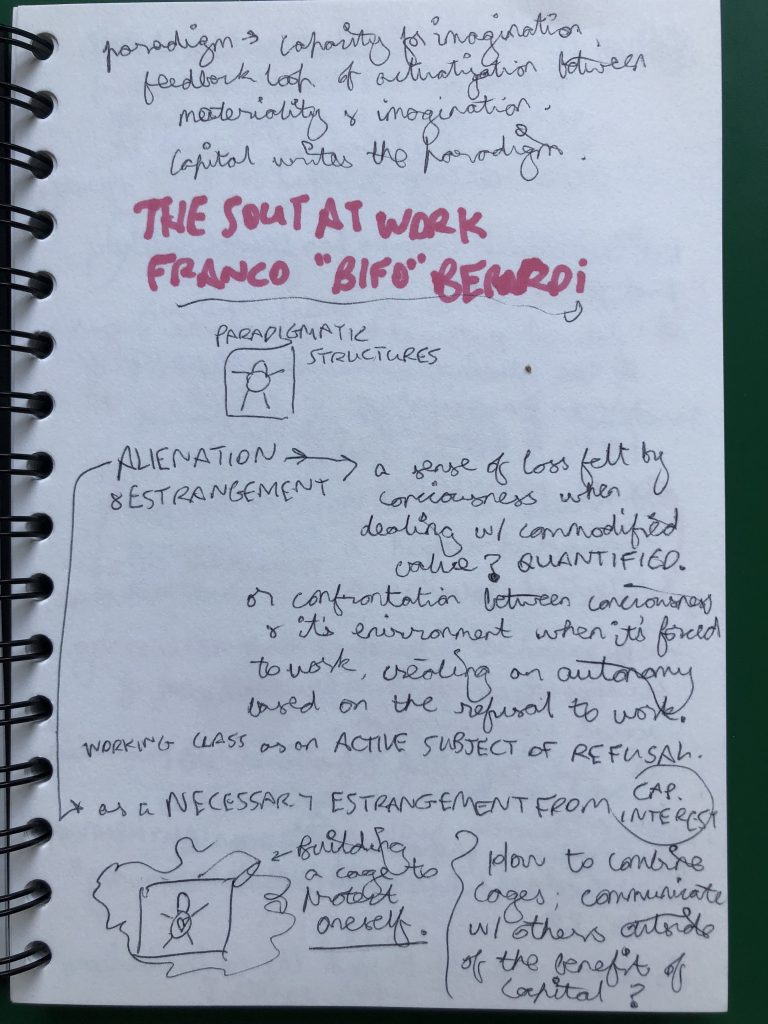 paradigm → capacity for imagination
feedback loop of actualization between
materiality & imagination.
Capital writes the paradigm.
THE SOUT AT WORK
FRANCO "BIFO" BERARDI
PARADIGMATIC
STRUCTURES
ALIENATION → a sense of loss felt by
& ESTRANGEMENT conciousness when
dealing w/ commodified
value? QUANTIFIED.
or confrontation between conciousness
& it's environment when it's forced
to work, creating an autonomy
based on the refusal to work.
WORKING CLASS as an ACTIVE SUBJECT OF REFUSAL.
as a NECESSARY ESTRANGEMENT FROM CAP.
INTEREST
Building
a cage to
protect
oneself.
How to combine
cages; communicate
w/ others outside
of the benefit of
capital?